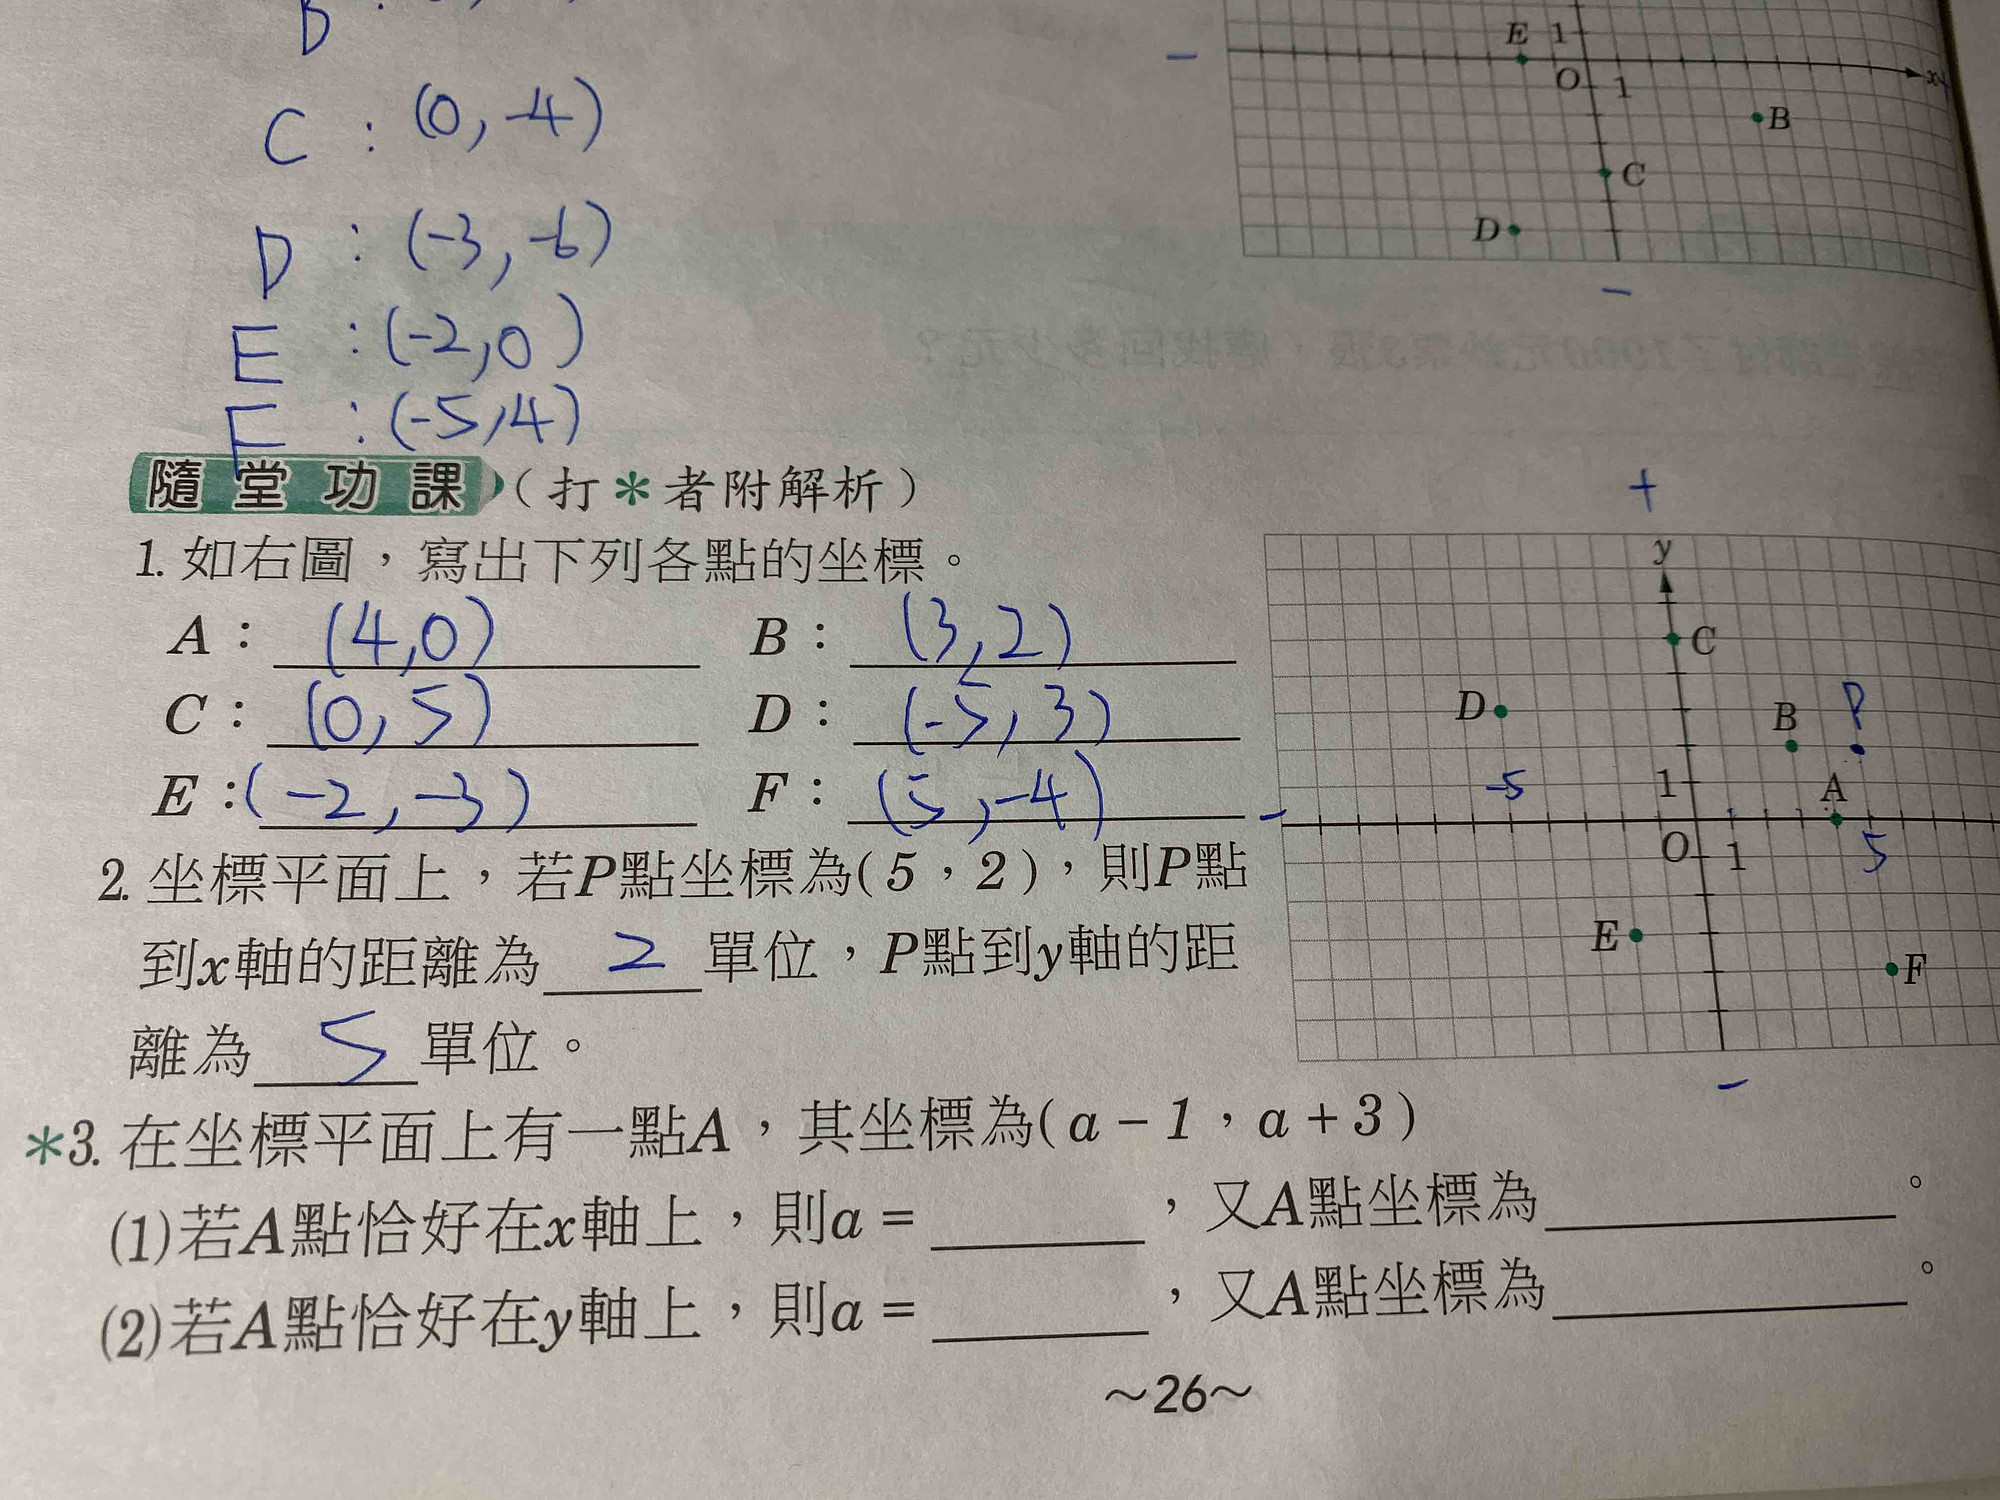 E 1
x
O 1
B
C
D
C : (0, -4)
D : (-3, -6)
E : (-2, 0)
F : (-5, 4)
隨堂功課（打＊者附解析）
1. 如右圖，寫出下列各點的坐標。
A： (4,0) B： (3,2)
C： (0,5) D： (-5,3)
E：(-2,-3) F： (5,-4)
2. 坐標平面上，若P點坐標為(5，2)，則P點
到x軸的距離為 2 單位，P點到y軸的距
離為 5 單位。
+
y
C
D
B P
-5 1 A
-
O 1 5
E
F
-
＊3. 在坐標平面上有一點A，其坐標為(a－1，a＋3)
(1)若A點恰好在x軸上，則a＝＿＿＿，又A點坐標為＿＿＿。
(2)若A點恰好在y軸上，則a＝＿＿＿，又A點坐標為＿＿＿。
～26～